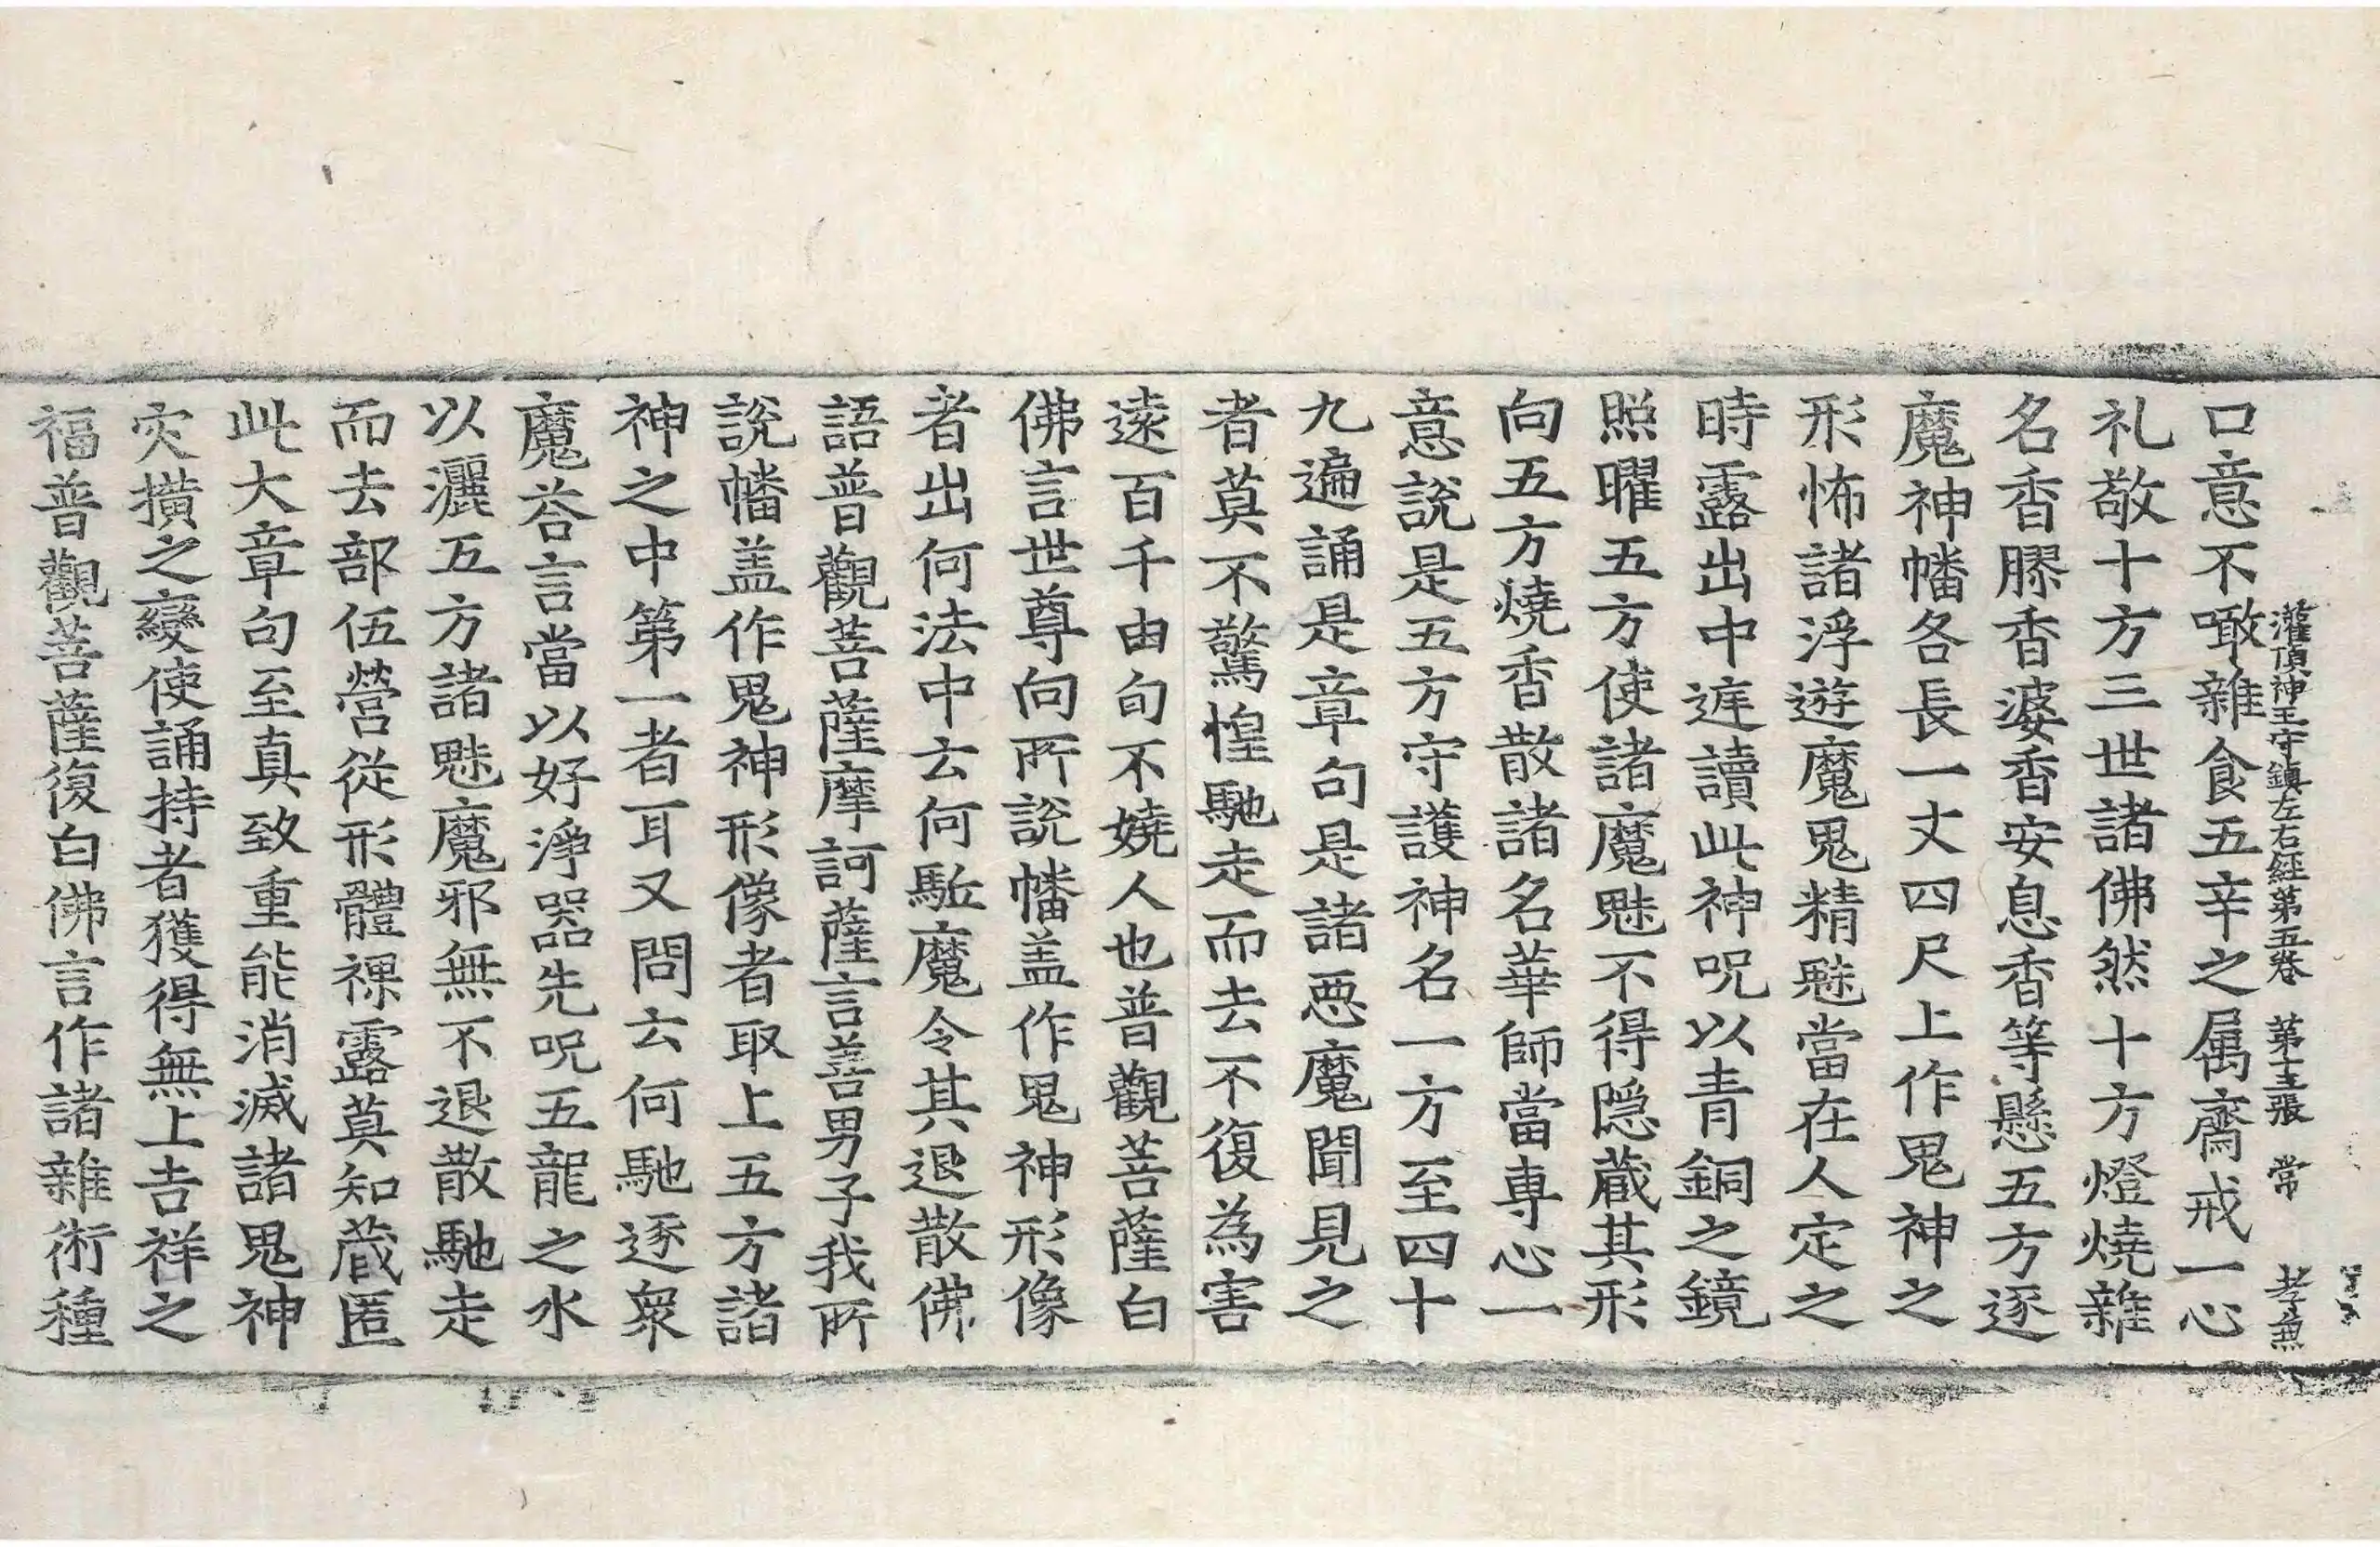 灌頂神王守鎮左右經第五卷 第十三張 常 孝兼
口意不噉雜食五辛之属齋戒一心
礼敬十方三世諸佛然十方燈燒雜
名香膠香婆香安息香等懸五方逐
魔神幡各長一丈四尺上作鬼神之
形怖諸浮遊魔鬼精魅當在人定之
時露出中遅讀此神呪以青銅之鏡
照曜五方使諸魔魅不得隠蔵其形
向五方燒香散諸名華師當專心一
意說是五方守護神名一方至四十
九遍誦是章句是諸惡魔聞見之
者莫不驚惶馳走而去不復為害
逺百千由旬不嬈人也普觀菩薩白
佛言世尊向所說幡盖作鬼神形像
者出何法中云何駈魔令其退散佛
語普觀菩薩摩訶薩言善男子我所
說幡盖作鬼神形像者取上五方諸
神之中第一者耳又問云何馳逐衆
魔荅言當以好淨器先呪五龍之水
以灑五方諸魅魔邪無不退散馳走
而去部伍營從形體裸露莫知蔵匿
此大章句至真致重能消滅諸鬼神
灾撗之變使誦持者獲得無上吉祥之
福普觀菩薩復白佛言作諸雜術種